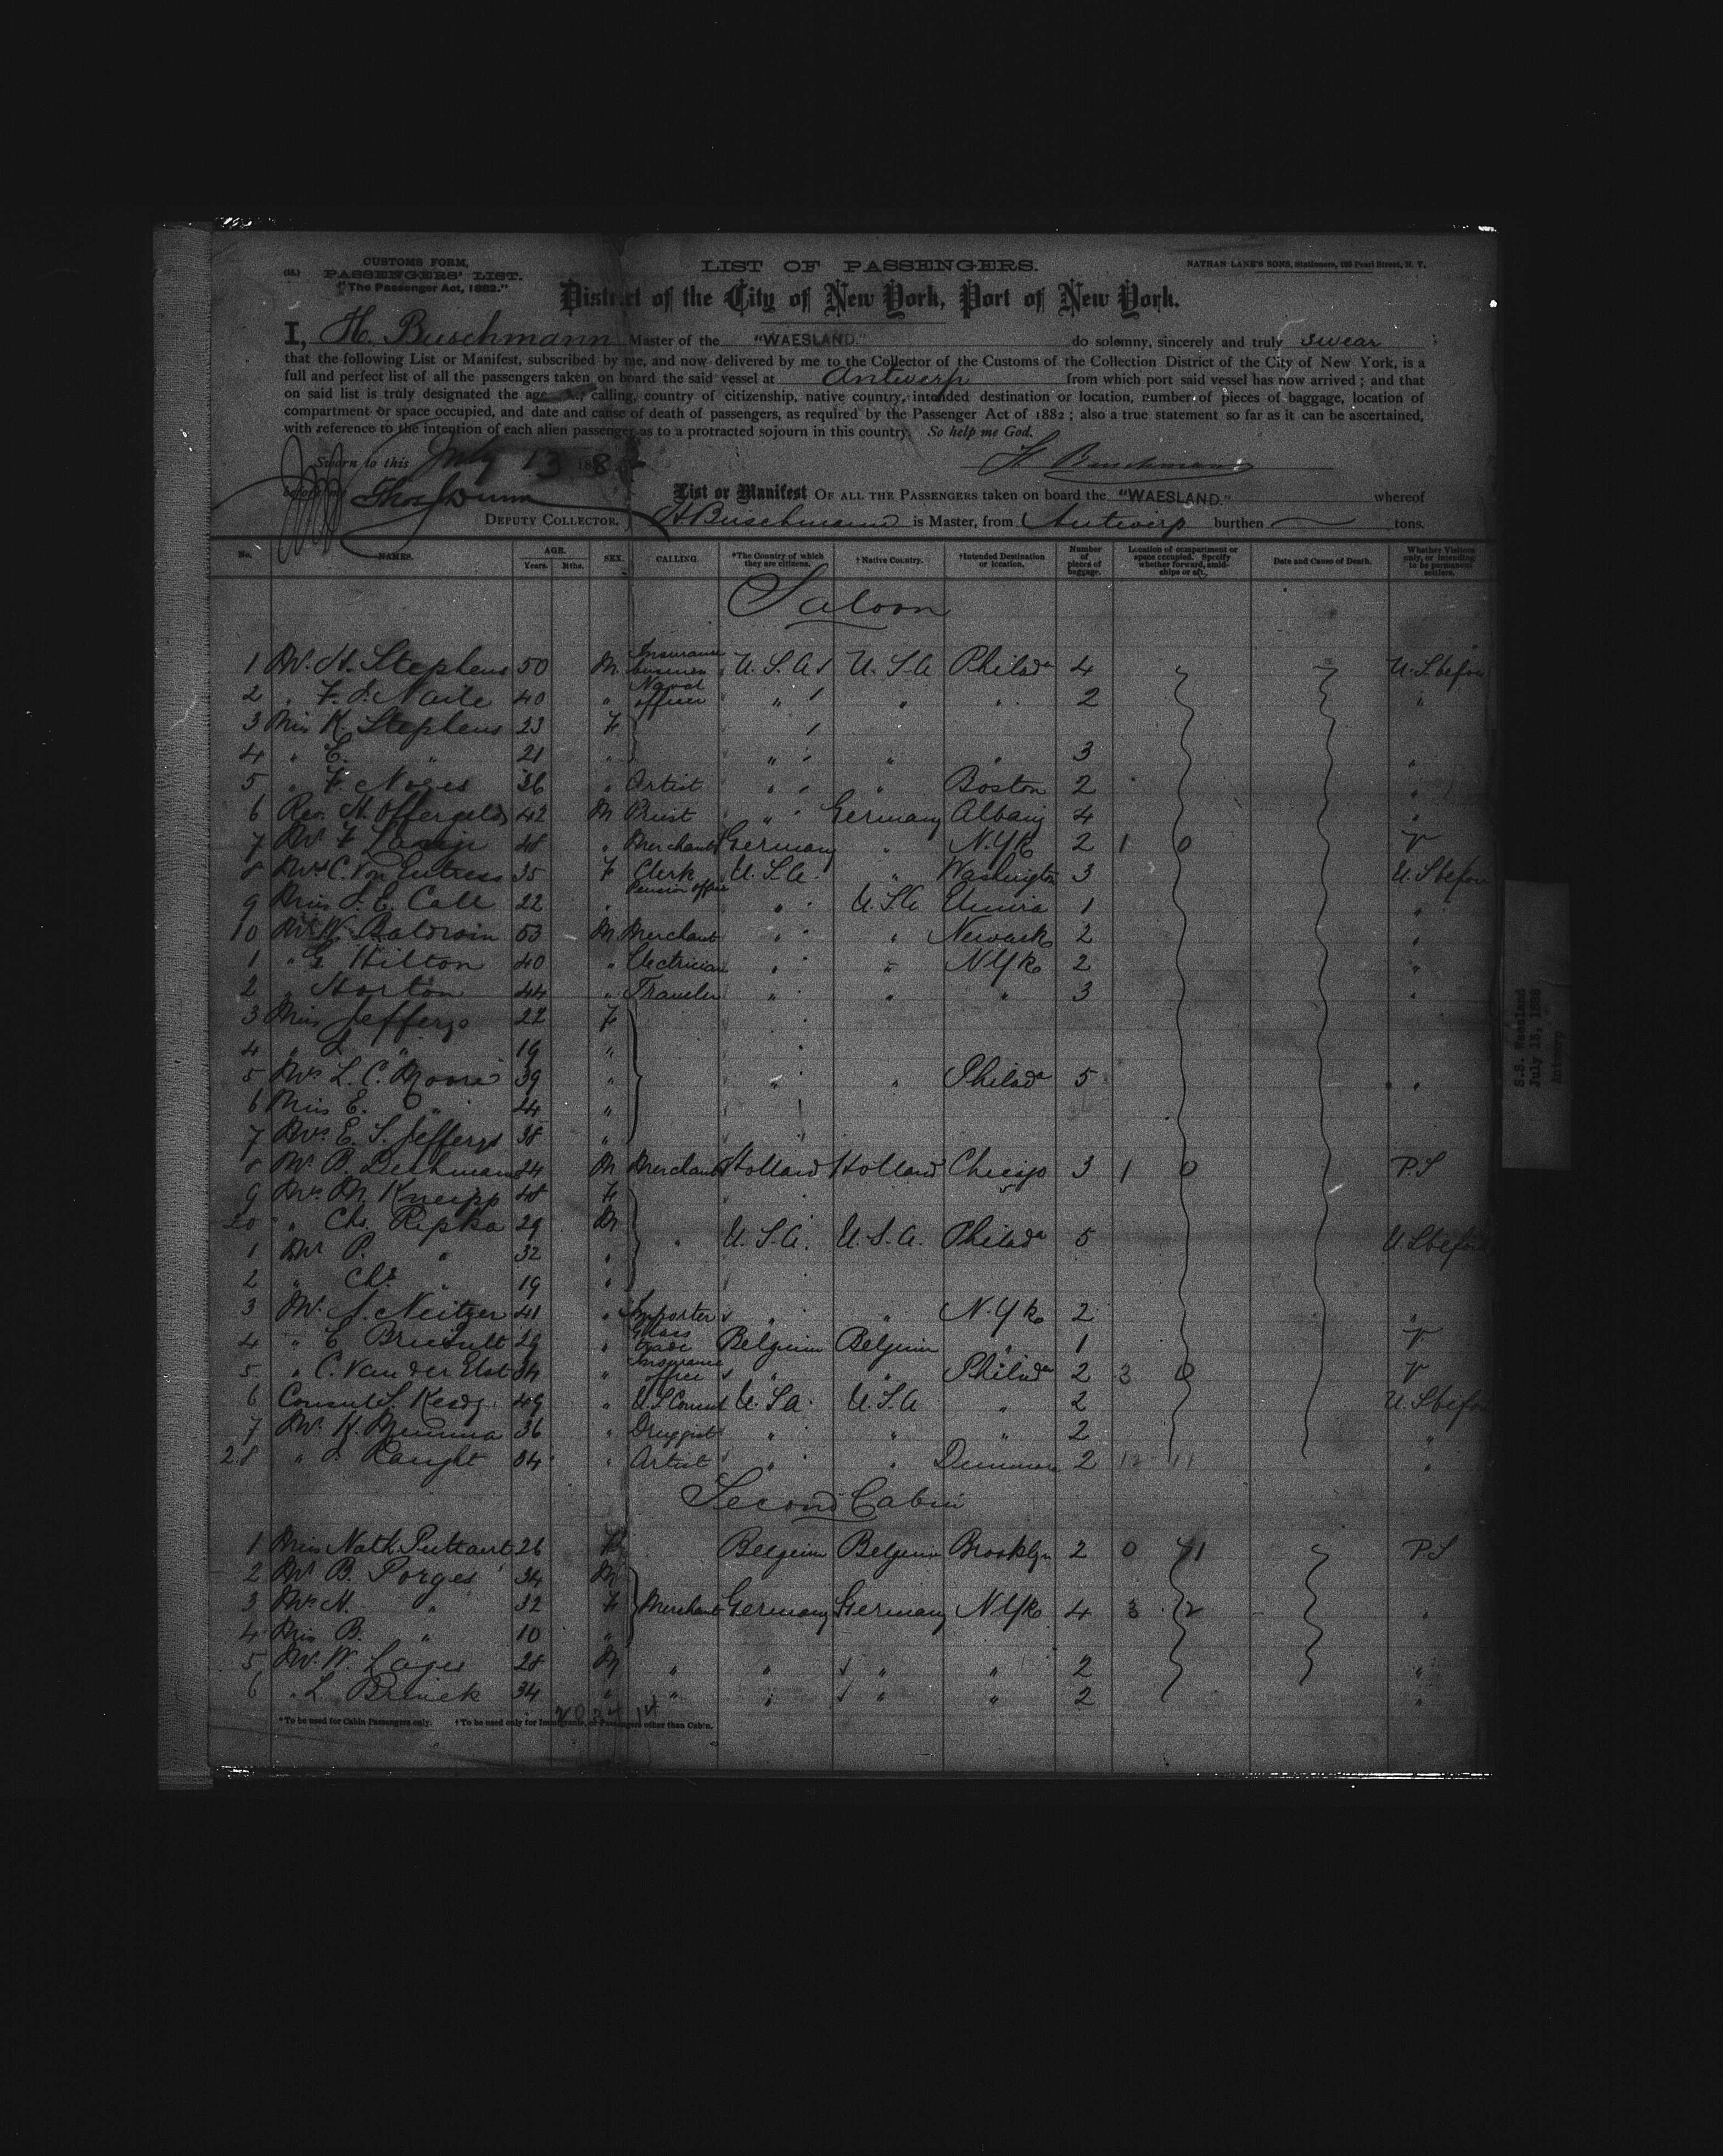 CUSTOMS FORM,
PASSENGERS' LIST.
"The Passenger Act, 1882."
LIST OF PASSENGERS.
NATHAN LANE'S SONS, Stationers, 126 Pearl Street, N. Y.
District of the City of New York, Port of New York.
I, H. Buschmann Master of the "WAESLAND." do solemny, sincerely and truly swear
that the following List or Manifest, subscribed by me, and now delivered by me to the Collector of the Customs of the Collection District of the City of New York, is a
full and perfect list of all the passengers taken on board the said vessel at Antwerp from which port said vessel has now arrived; and that
on said list is truly designated the age, calling, country of citizenship, native country, intended destination or location, number of pieces of baggage, location of
compartment or space occupied, and date and cause of death of passengers, as required by the Passenger Act of 1882; also a true statement so far as it can be ascertained,
with reference to the intention of each alien passenger as to a protracted sojourn in this country. So help me God.
Sworn to this July 13 188
H Buschmann
before me Thos Dunn
List or Manifest OF ALL THE PASSENGERS taken on board the "WAESLAND." whereof
DEPUTY COLLECTOR. H Buschmann is Master, from Antwerp burthen tons.
No. NAMES. AGE. Years. Mths. SEX. CALLING. *The Country of which they are citizens. †Native Country. †Intended Destination or location. Number of pieces of baggage. Location of compartment or space occupied. Specify whether forward, amid-ships or aft. Date and Cause of Death. Whether Visitors only, or intending to be permanent settlers.
Saloon
1 Mr. H. Stephens 50 M Insurance business U.S.A U.S.A Philada 4 U.S. before
2 " F. 40 " Naval officer " " " 2 "
3 Miss K. Stephens 23 F
4 " E. " 21 " " " " 3 "
5 " F. Noyes 36 " Artist " " Boston 2 "
6 Rev. H. Offergeld 42 M Priest " Germany Albany 4 "
7 Mr F 48 " Merchant Germany " N.Yk 2 1 0 V
8 Mrs C. Von Entress 35 F Clerk Pension office U.S.A. " Washington 3 U.S before
9 Miss J. E. Call 22 " " U.S.A 1 "
10 Mr W. Baldwin 53 M Merchant " " Newark 2 "
1 " G. Hilton 40 " Electrician " " N.Yk 2 "
2 " Horton 44 " Traveler " " " 3 "
3 Miss Jefferys 22 F
4 " " 19 "
5 Mrs L. C. Moore 39 " " " Philada 5 "
6 Miss E. " 24 "
7 Mrs E. S. Jefferys 38 "
8 Mr B. 24 M Merchant Holland Holland Chicago 3 1 0 P.S
9 Mrs M. Kneipp 48 F
20 " Chs. Ripka 29 M
1 Mr P. " 32 " " U.S.A. U.S.A. Philada 5 U.S before
2 " Chs " 19 "
3 Mr. A. Neitzer 41 " Importer " " N.Yk 2 "
4 " E 29 " Glass trade Belgium Belgium " 1 V
5 " C. Van der Elst 34 " Insurance office " " Philada 2 3 0 V
6 Consul S. 49 " U.S Consul U.S.A U.S.A " 2 U.S before
7 Mr. K. Mumma 36 " Druggist " " " 2 "
28 " J. Raught 34 " Artist " " 2 "
Second Cabin
1 Miss Nath. Puttaert 26 F Belgium Belgium Brooklyn 2 0 P.S
2 Mr B. Porges 34 M
3 Mrs H. " 32 F Merchant Germany Germany N.Yk 4 3 "
4 Miss B. " 10 "
5 Mr. W. Lages 28 M " " " " 2 "
6 " L 34 " " " " " 2 "
*To be used for Cabin Passengers only. †To be used only for Immigrants, or Passengers other than Cabin.
S.S. Waesland
July 13, 1888
Antwerp